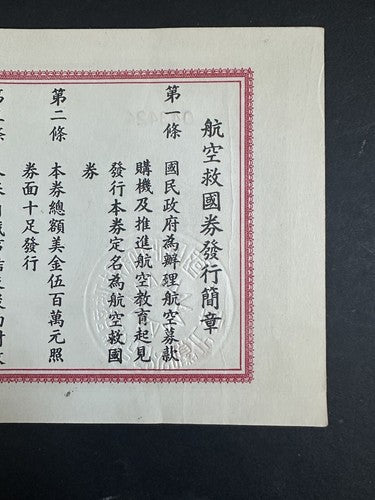 航空救國券發行簡章
第一條 國民政府為辦理航空募款
購機及推進航空教育起見
發行本券定名為航空救國
券
第二條 本券總額美金伍百萬元照
券面十足發行